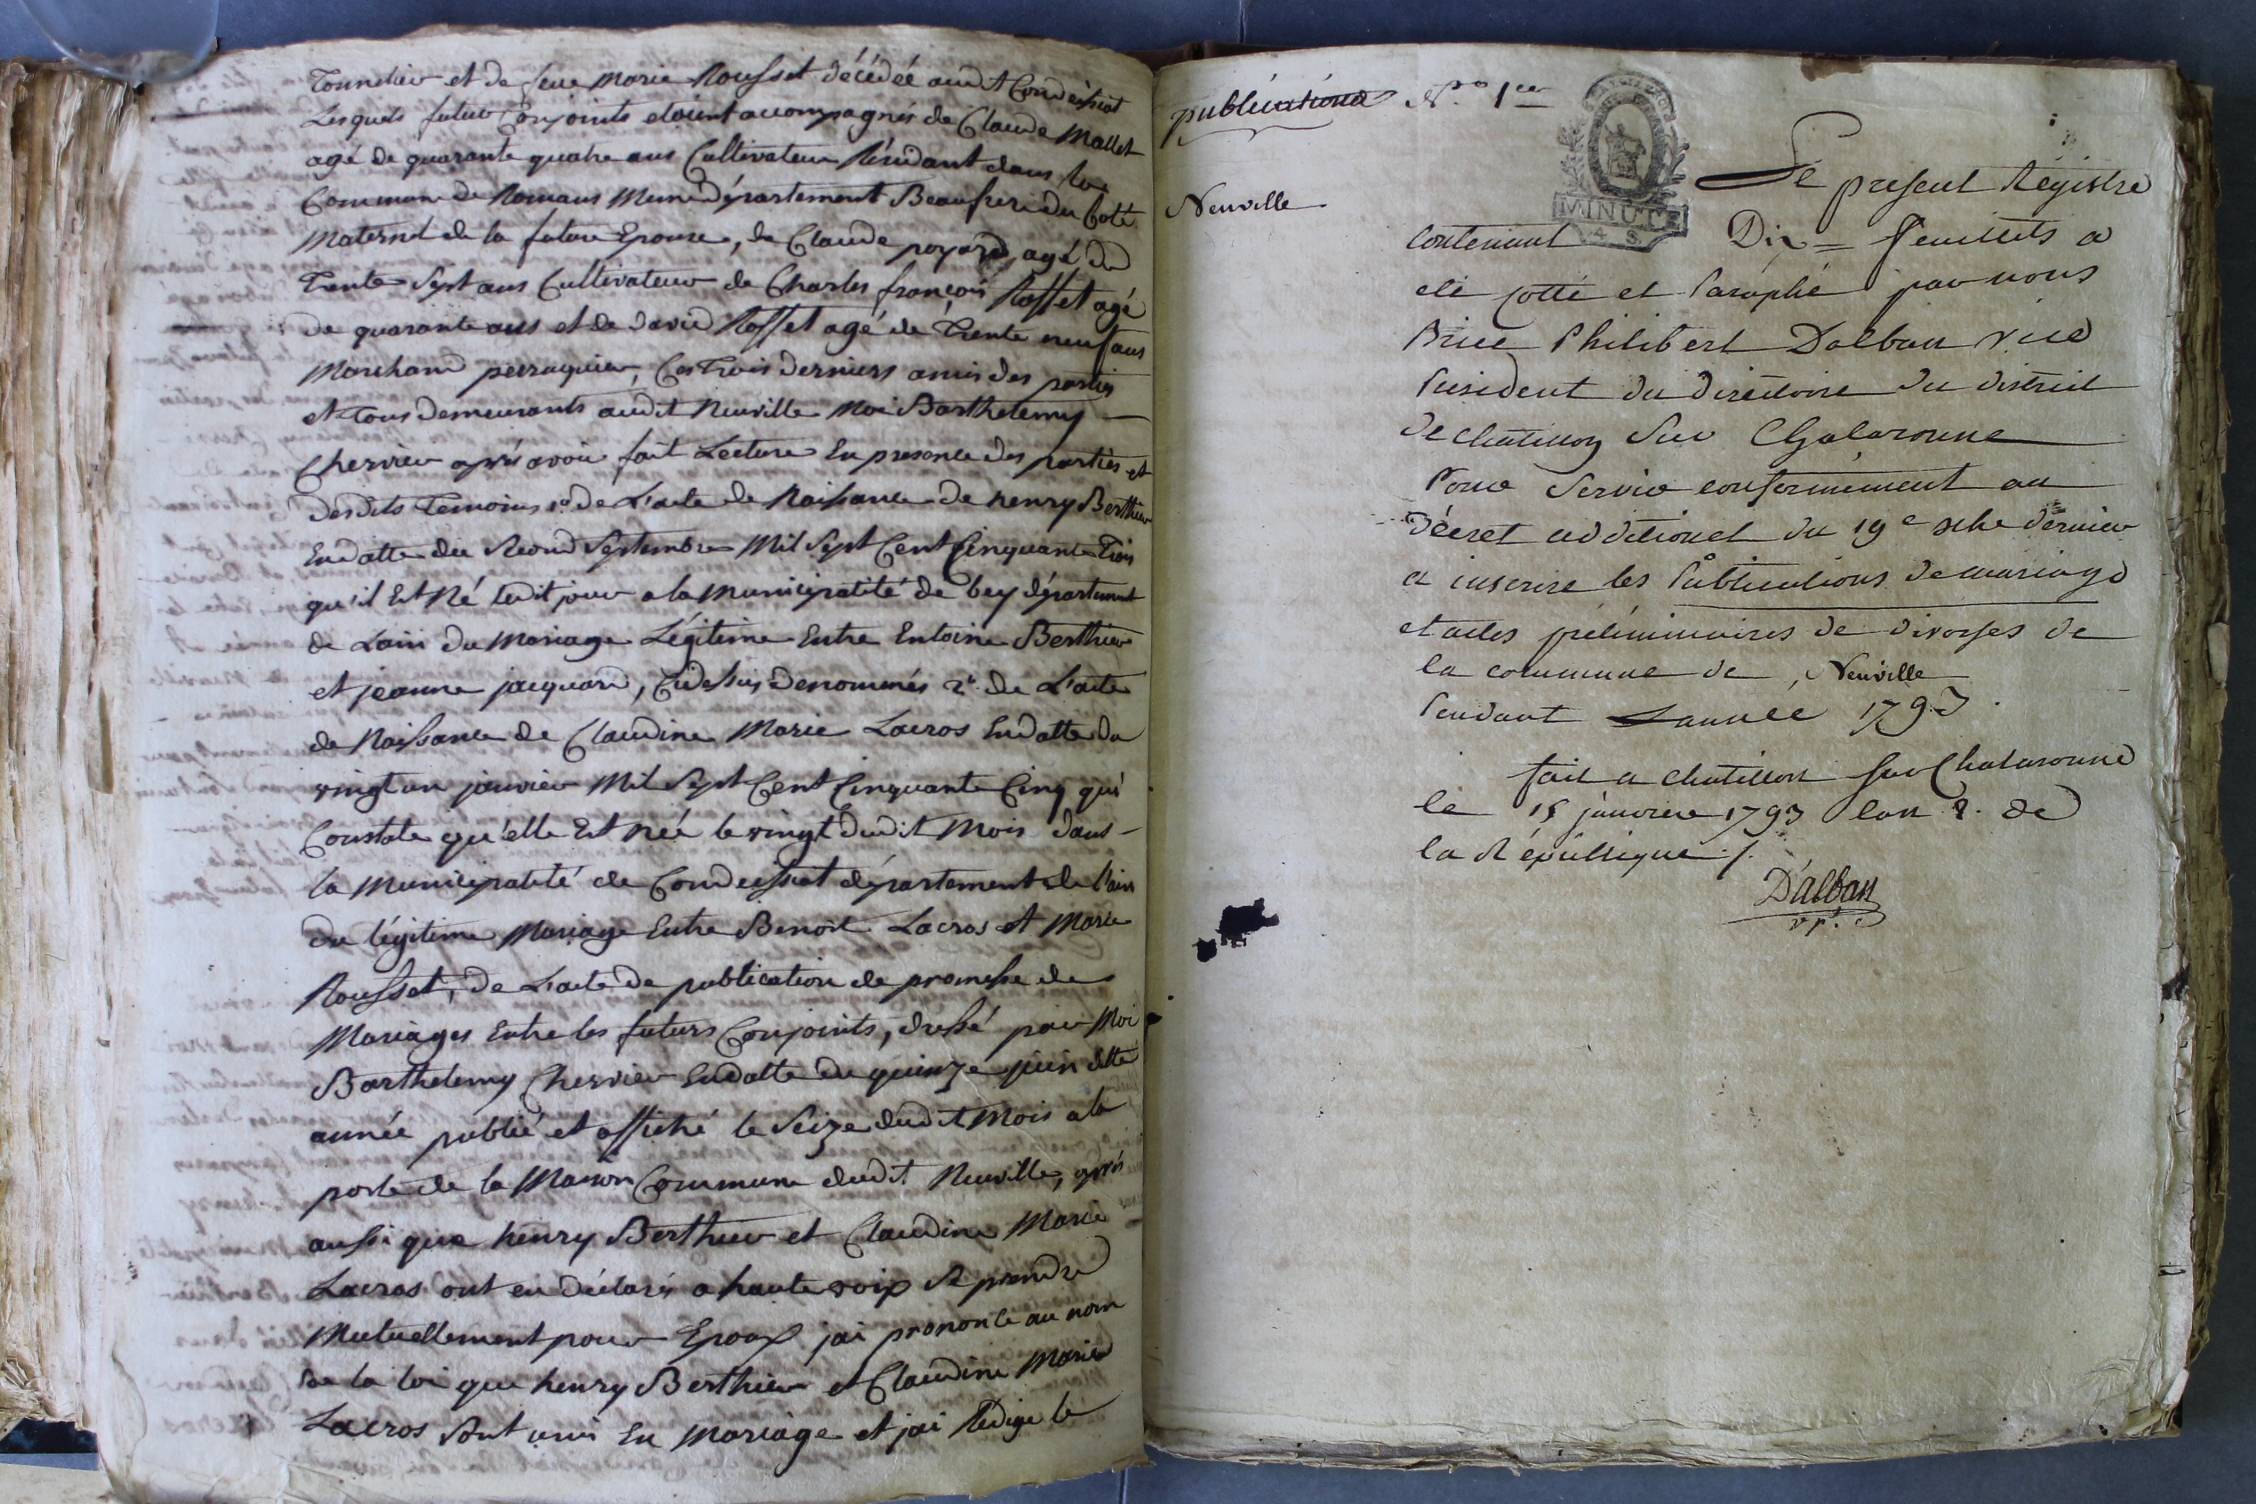 Tonnelier et de feue Marie Rousset décédée audit Condeissiat
Lesquels futurs Conjoints etoient accompagnés de Claude Mallet
agé de quarante quatre ans Cultivateur Résidant dans la
Commune de Romans Meme département Beaufrere du Coté
Maternel de la future Epouse, de Claude poyard agé de
Trente Sept ans Cultivateur de Charles françois Rosset agé
de quarante ans et de david Rosset agé de Trente neuf ans
Marchand perruquier, Ces Trois derniers amis des parties
et Tous demeurants audit Neuville Moi Barthelemy
Chervier après avoir fait Lecture En presence des parties et
desdits Temoins 1º de L'acte de Naissance de henry Berthier
En datte du Second Septembre Mil Sept Cent Cinquante Trois
qu'il Est Né Ledit jour a la Municipalité de bey département
de Lain du Mariage Légitime Entre Entoine Berthier
et jeanne jacquard, Cidessus denommés 2º de L'acte
de Naissance de Claudine Marie Lacros En datte du
vingt un janvier Mil Sept Cent Cinquante Cinq qui
Constate qu'elle Est Née le vingt dudit Mois dans
la Municipalité de Condeissiat département de l'ain
du légitime Mariage Entre Benoit Lacros et Marie
Rousset, de L'acte de publication de promesse de
Mariages Entre les futurs Conjoints, dressé par Moi
Barthelemy Chervier En datte du quinze juin dette
année publié et affiché le Seize dudit Mois a la
porte de la Maison Commune dudit Neuville, après
aussi que henry Berthier et Claudine Marie
Lacros ont eu déclaré a haute voix se prendre
Mutuellement pour Epoux jai prononcé au nom
de la loi que henry Berthier et Claudine Marie
Lacros Sont unis En Mariage et jai Redigé le
publications N.º 1er
Neuville
MINUTE
4 S.
Le present Régistre
contenant Dix = feuillets a
eté cotté et Paraphé par nous
Brice Philibert Dalban vice
President du directoire du district
de chatillon sur Chalaronne
Pour servir conformement au
décret additionel du 19e xbre dernier
a inscrire les Publications de mariage
et actes préliminaires de divorses de
la commune de Neuville
Pendant Lannée 1793.
fait a chatillon sur Chalaronne
le 15 janvier 1793 lan 2. de
la République ./.
D'alban
v p.t